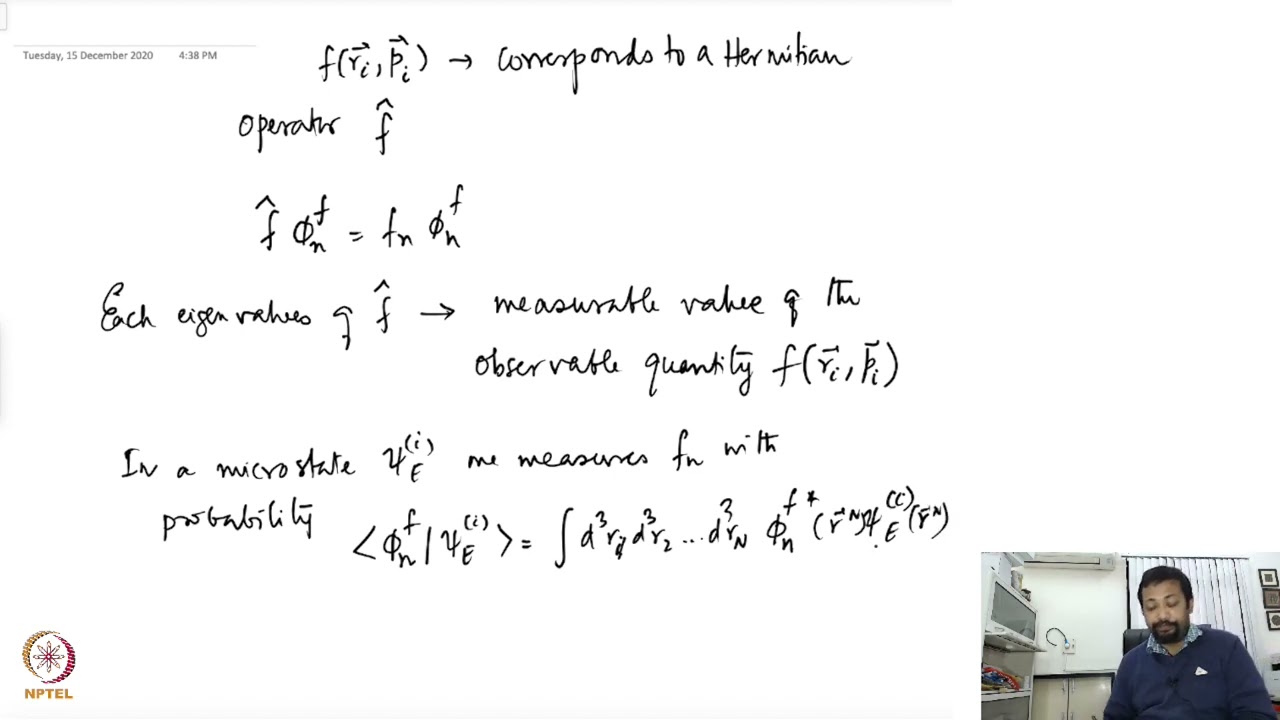 Tuesday, 15 December 2020 4:38 PM
f(r⃗_i, p⃗_i) → corresponds to a Hermitian
operator f̂
f̂ ϕ_n^f = f_n ϕ_n^f
Each eigenvalues of f̂ → measurable value of the
observable quantity f(r⃗_i, p⃗_i)
In a microstate Ψ_E^(i) one measures f_n with
probability ⟨ϕ_n^f | Ψ_E^(i)⟩ = ∫ d³r_1 d³r_2 ... d³r_N ϕ_n^f* (r⃗^N) Ψ_E^(i) (r⃗^N)
NPTEL